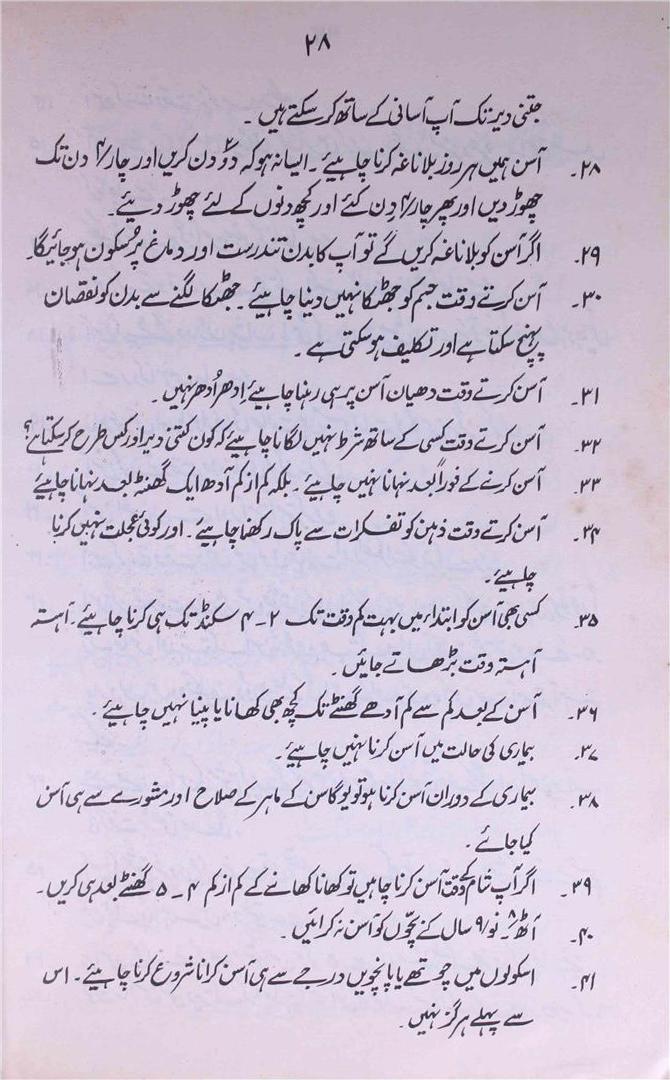 ۲۸
جتنی دیر تک آپ آسانی کے ساتھ کر سکتے ہیں ۔
۲۸۔ آسن ہمیں ہر روز بلا ناغہ کرنا چاہیئے ۔ ایسا نہ ہو کہ دو۲ دن کریں اور چار/۴ دن تک
چھوڑ دیں اور پھر چار/۴ دن کئے اور کچھ دنوں کے لئے چھوڑ دیئے۔
۲۹۔ اگر آسن کو بلا ناغہ کریں گے تو آپ کا بدن تندرست اور دماغ پُرسکون ہو جائیگا۔
۳۰۔ آسن کرتے وقت جسم کو جھٹکا نہیں دینا چاہیئے ۔ جھٹکا لگنے سے بدن کو نقصان
پہنچ سکتا ہے اور تکلیف ہو سکتی ہے ۔
۳۱۔ آسن کرتے وقت دھیان آسن پر ہی رہنا چاہیئے اِدھر اُدھر نہیں ۔
۳۲۔ آسن کرتے وقت کسی کے ساتھ شرط نہیں لگانا چاہیئے کہ کون کتنی دیر اور کس طرح کر سکتا ہے؟
۳۳۔ آسن کرنے کے فوراً بعد نہانا نہیں چاہیئے ۔ بلکہ کم از کم آدھ ایک گھنٹہ بعد نہانا چاہیئے
۳۴۔ آسن کرتے وقت ذہن کو تفکرات سے پاک رکھنا چاہیئے ۔ اور کوئی عجلت نہیں کرنا
چاہیئے ۔
۳۵۔ کسی بھی آسن کو ابتداء میں بہت کم وقت تک ۲ ۔ ۴ سکنڈ تک ہی کرنا چاہیئے ۔ آہستہ
آہستہ وقت بڑھاتے جائیں ۔
۳۶۔ آسن کے بعد کم سے کم آدھے گھنٹے تک کچھ بھی کھانا یا پینا نہیں چاہیئے ۔
۳۷۔ بیماری کی حالت میں آسن کرنا نہیں چاہیئے ۔
۳۸۔ بیماری کے دوران آسن کرنا ہو تو یوگاسن کے ماہر کے صلاح اور مشورے سے ہی آسن
کیا جائے ۔
۳۹۔ اگر آپ شام کے وقت آسن کرنا چاہیں تو کھانا کھانے کے کم از کم ۴ ۔ ۵ گھنٹے بعد ہی کریں ۔
۴۰۔ آٹھ۸ ۔ نو/۹ سال کے بچّوں کو آسن نہ کرائیں ۔
۴۱۔ اسکولوں میں چوتھے یا پانچویں درجے سے ہی آسن کرانا شروع کرنا چاہیئے ۔ اس
سے پہلے ہرگز نہیں ۔